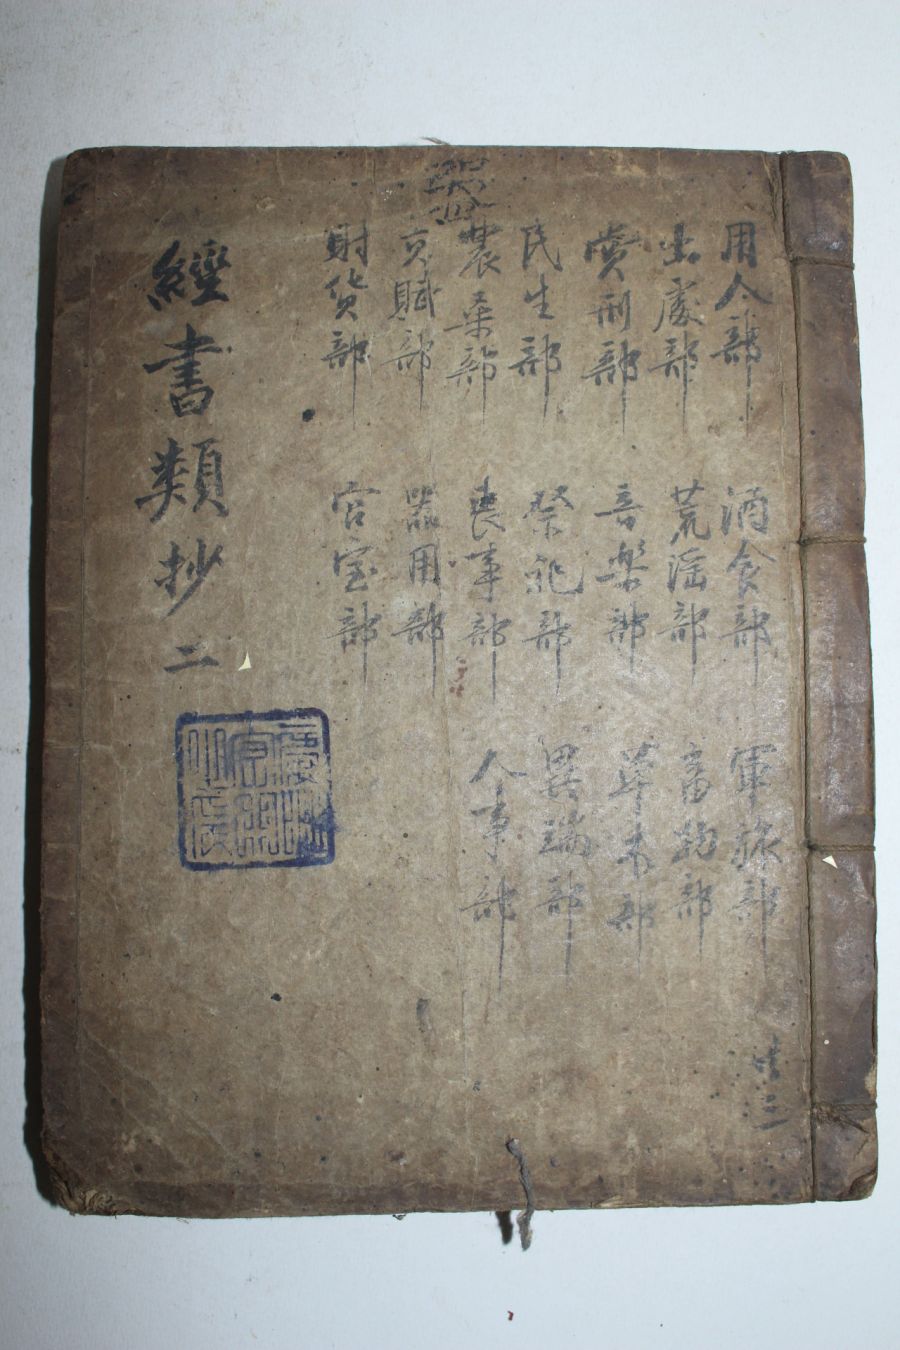 用人部
出處部
賞刑部
民生部
農桑部
貢賦部
財貨部
酒食部
荒淫部
音樂部
祭祀部
喪事部
器用部
宮室部
軍旅部
畜物部
草木部
異端部
人事部
經書類抄 二
共三